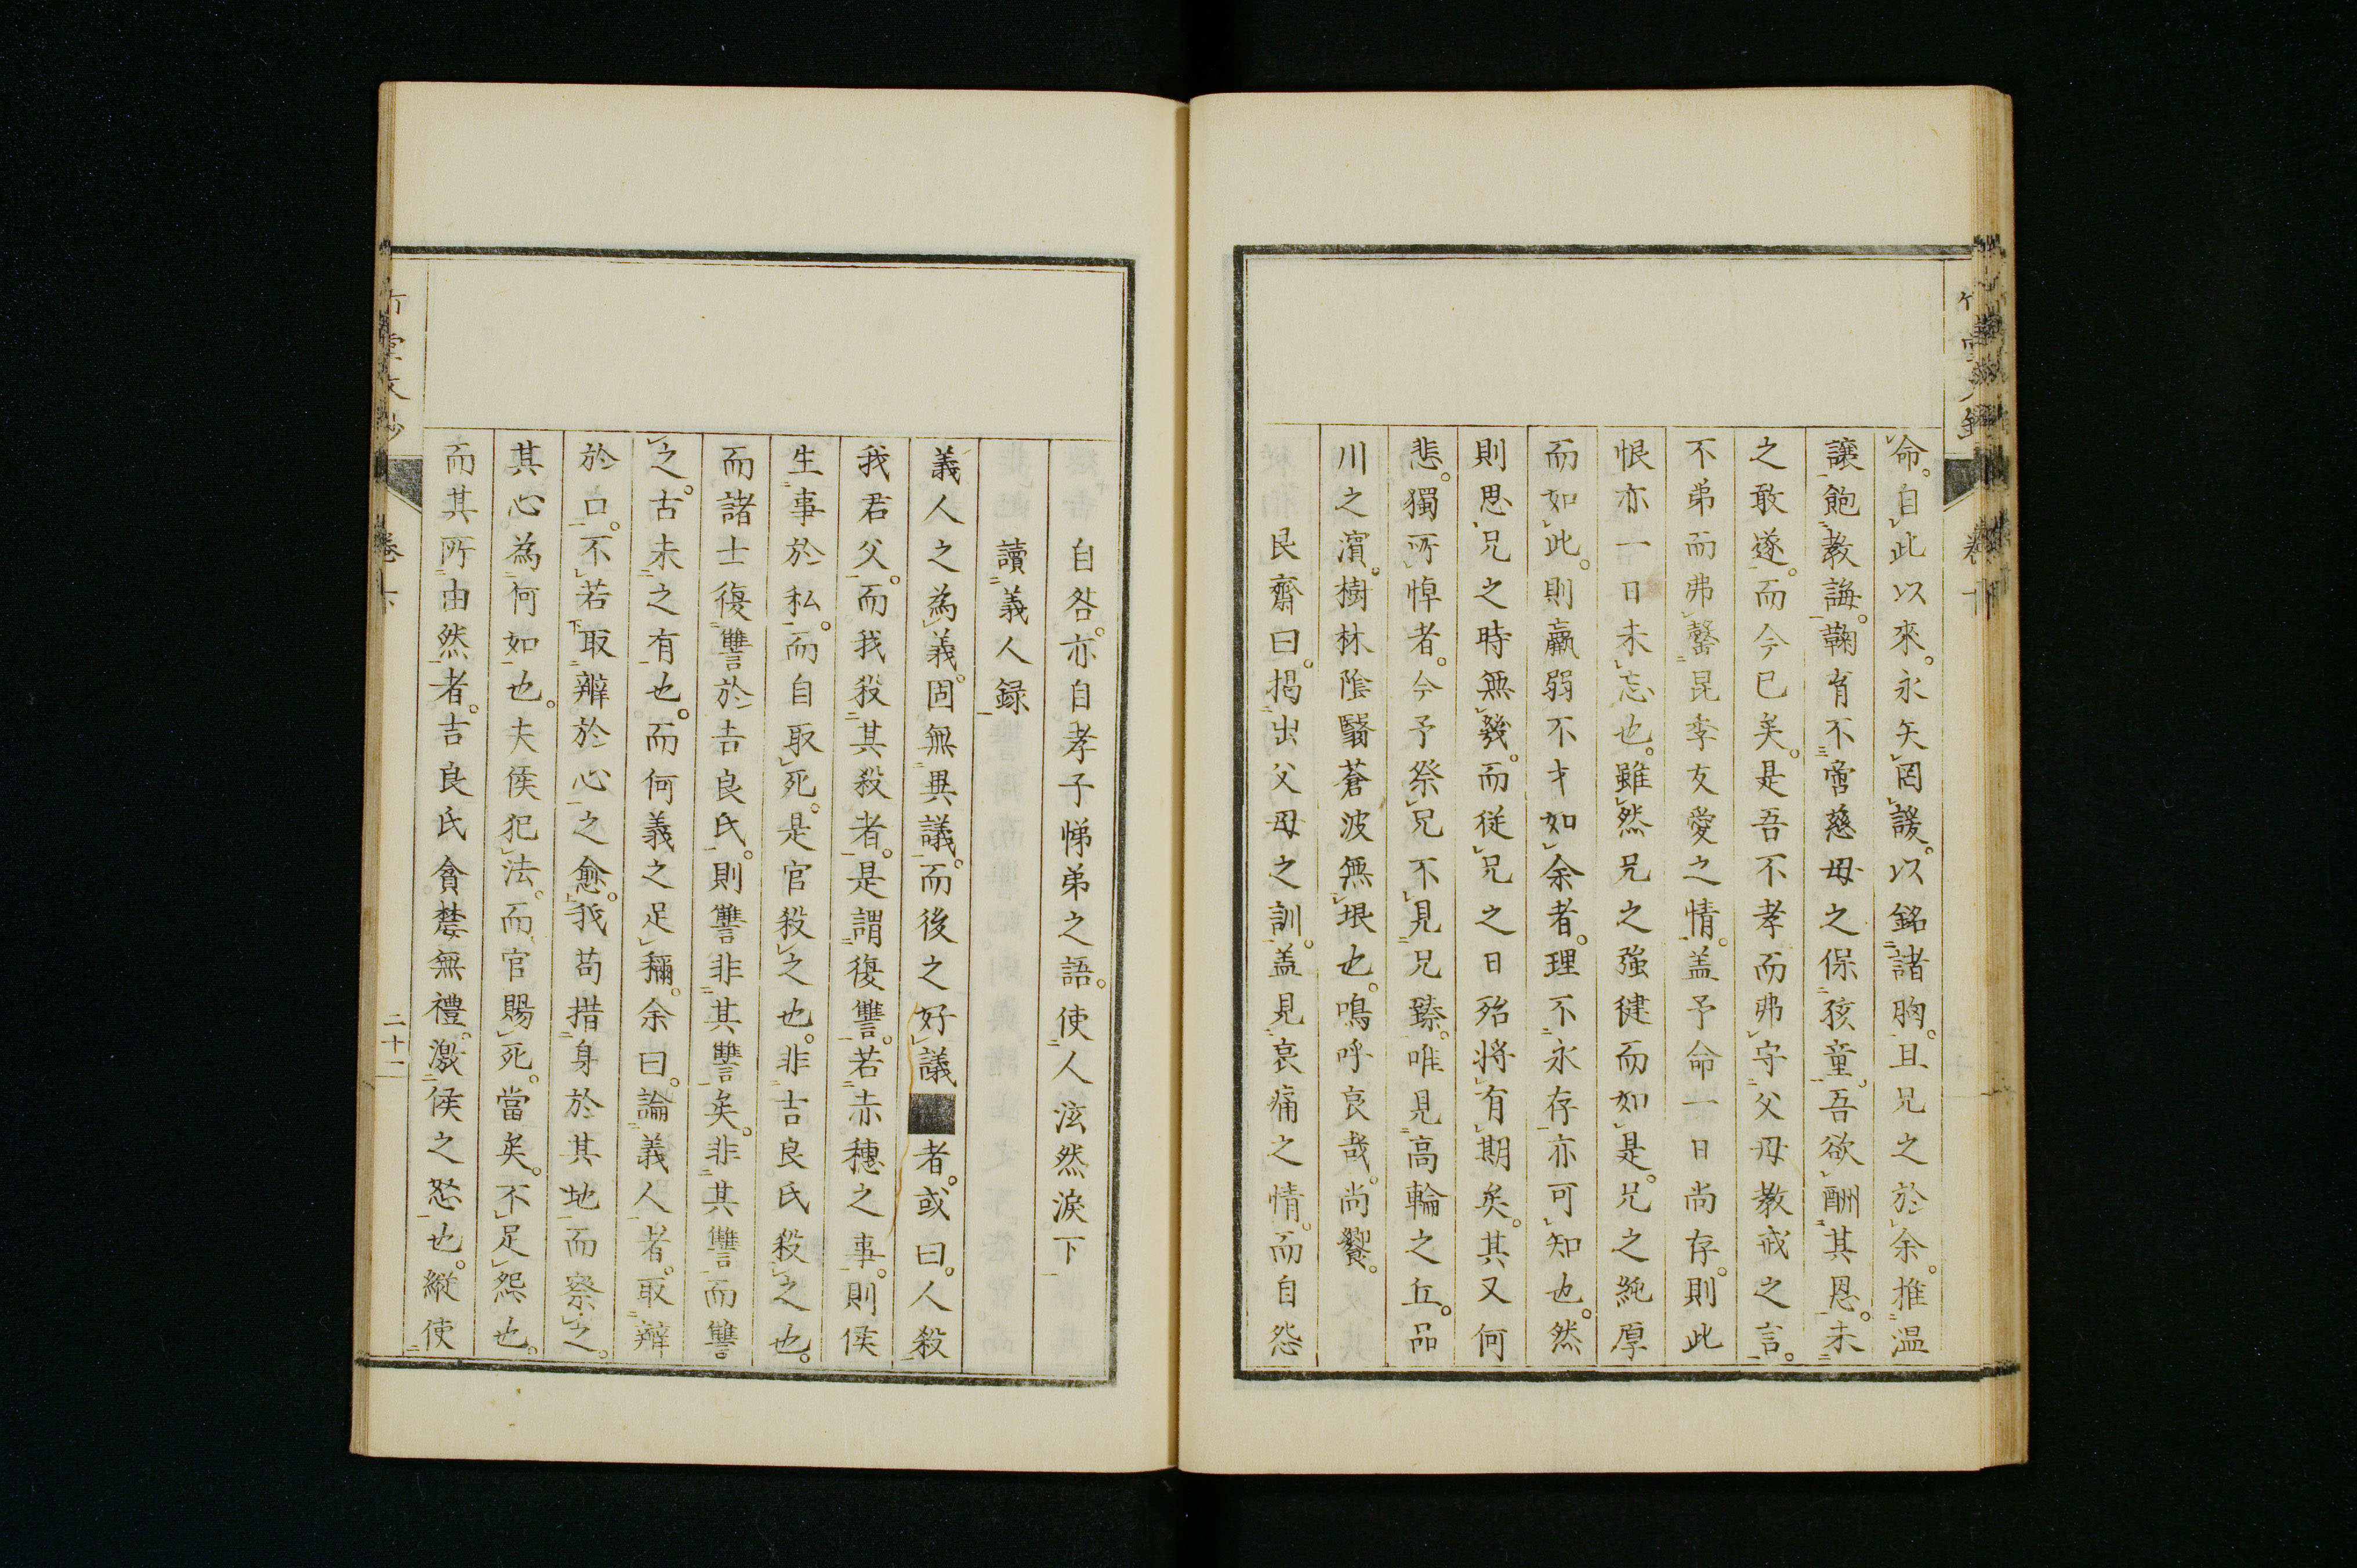 命。自此以來。永矢罔諼。以銘諸胸。且兄之於余。推温
讓飽教誨。鞠育不啻慈母之保孩童。吾欲酬其恩。未
之敢遂。而今已矣。是吾不孝而弗守父母教戒之言。
不弟而弗罄昆季友愛之情。盖予命一日尚存。則此
恨亦一日未忘也。雖然兄之強健而如是。兄之純厚
而如此。則羸弱不才如余者。理不永存。亦可知也。然
則思兄之時無幾。而従兄之日殆將有期矣。其又何
悲。獨所悼者。今予祭兄不見兄臻。唯見高輪之丘。品
川之濵。樹林陰翳。蒼波無垠也。鳴呼哀哉。尚饗。
艮齋曰。揭出父母之訓。盖見哀痛之情。而自怨
自咎。亦自孝子悌弟之語。使人泫然淚下
讀義人録
義人之為義。固無異議。而後之好議者。或曰。人殺
我君父。而我殺其殺者。是謂復讐。若赤穗之事。則侯
生事於私。而自取死。是官殺之也。非吉良氏殺之也。
而諸士復讐於吉良氏。則讐非其讐矣。非其讐而讐
之。古未之有也。而何義之足稱。余曰。論義人者。取辯
於口。不若取辯於心之愈。我苟措身於其地而察之。
其心為何如也。夫侯犯法。而官賜死。當矣。不足怨也。
而其所由然者。吉良氏貪婪無禮。激侯之怒也。縦使
卷十
二十一